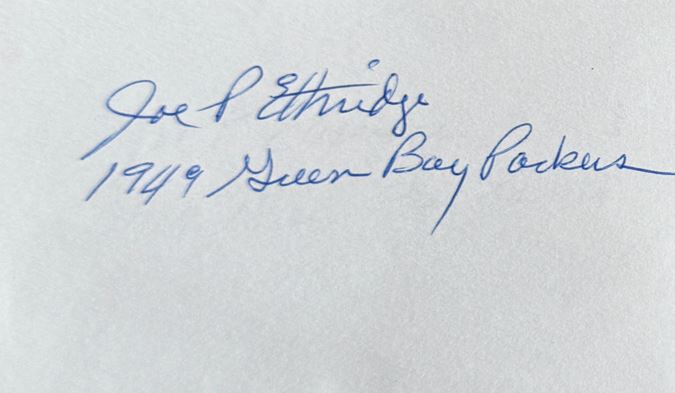 Joe P Ethridge
1949 Green Bay Packers